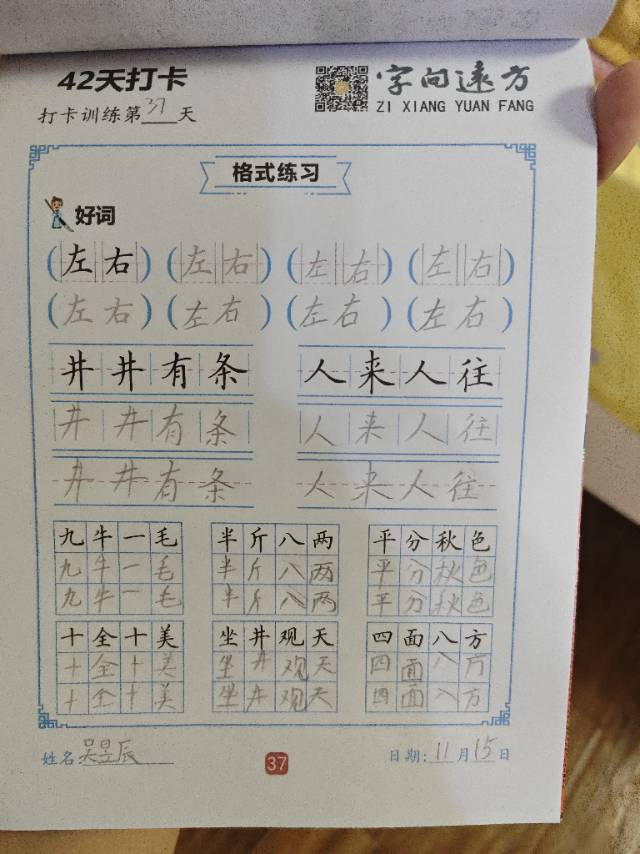 42天打卡
字向远方
ZI XIANG YUAN FANG
打卡训练第37天
格式练习
好词
(左右) (左右) (左右) (左右)
(左右) (左右) (左右) (左右)
井井有条 人来人往
井井有条 人来人往
井井有条 人来人往
九牛一毛 半斤八两 平分秋色
九牛一毛 半斤八两 平分秋色
九牛一毛 半斤八两 平分秋色
十全十美 坐井观天 四面八方
十全十美 坐井观天 四面八方
十全十美 坐井观天 四面八方
姓名:吴昱辰 37 日期:11月15日